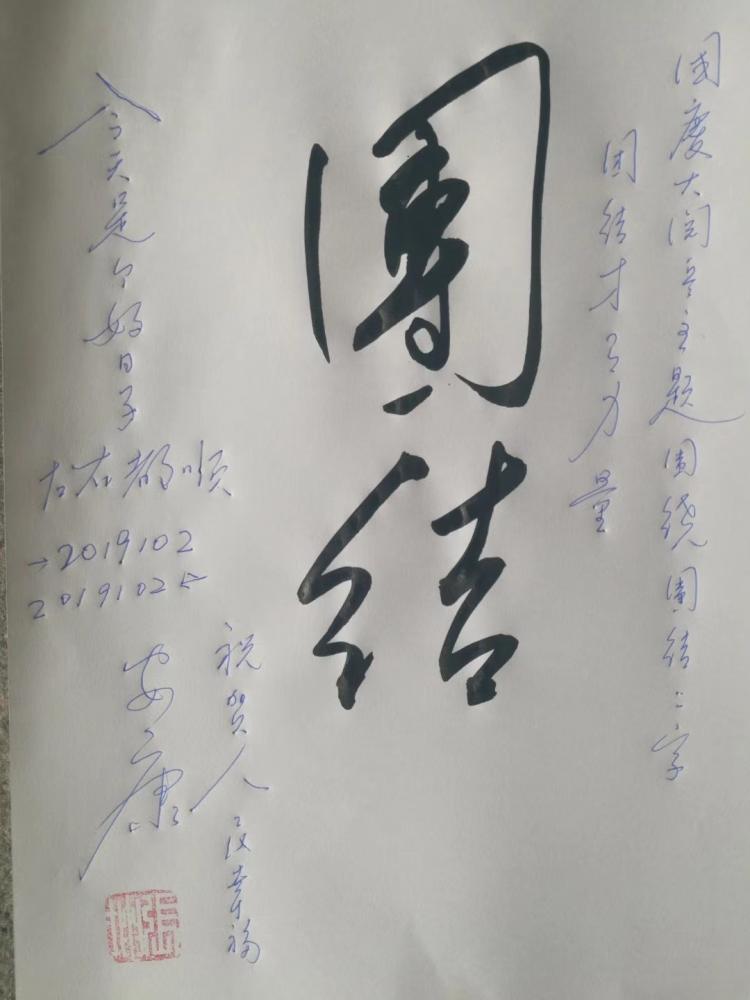 国庆大阅兵主题围绕團结二字
团结才有力量
團结
今天是个好日子
左右都顺
→2019102
2019102←
祝贺人民幸福
安康